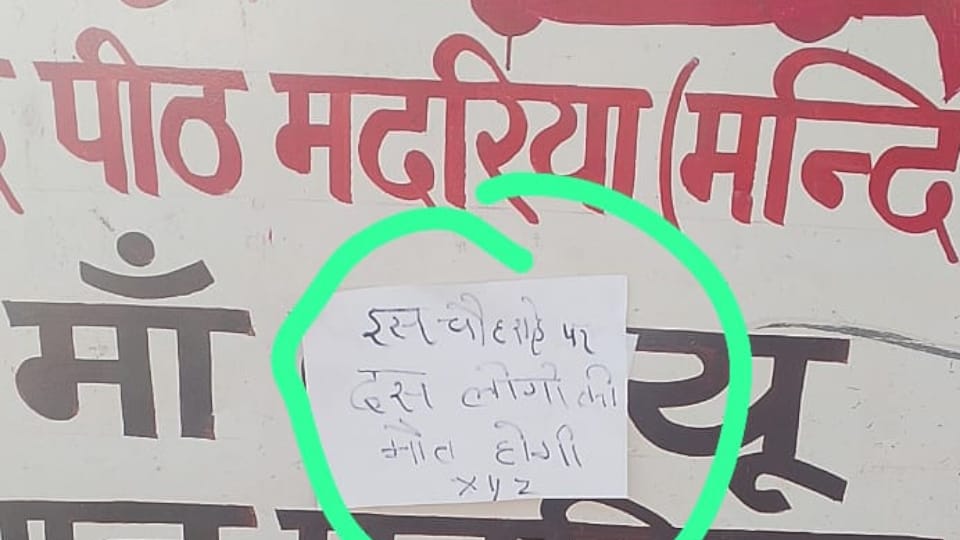 पीठ मदरिया (मन्दि
माँ
यू
इस चौहराहे पर
दस लोगो की
मौत होगी
xyz